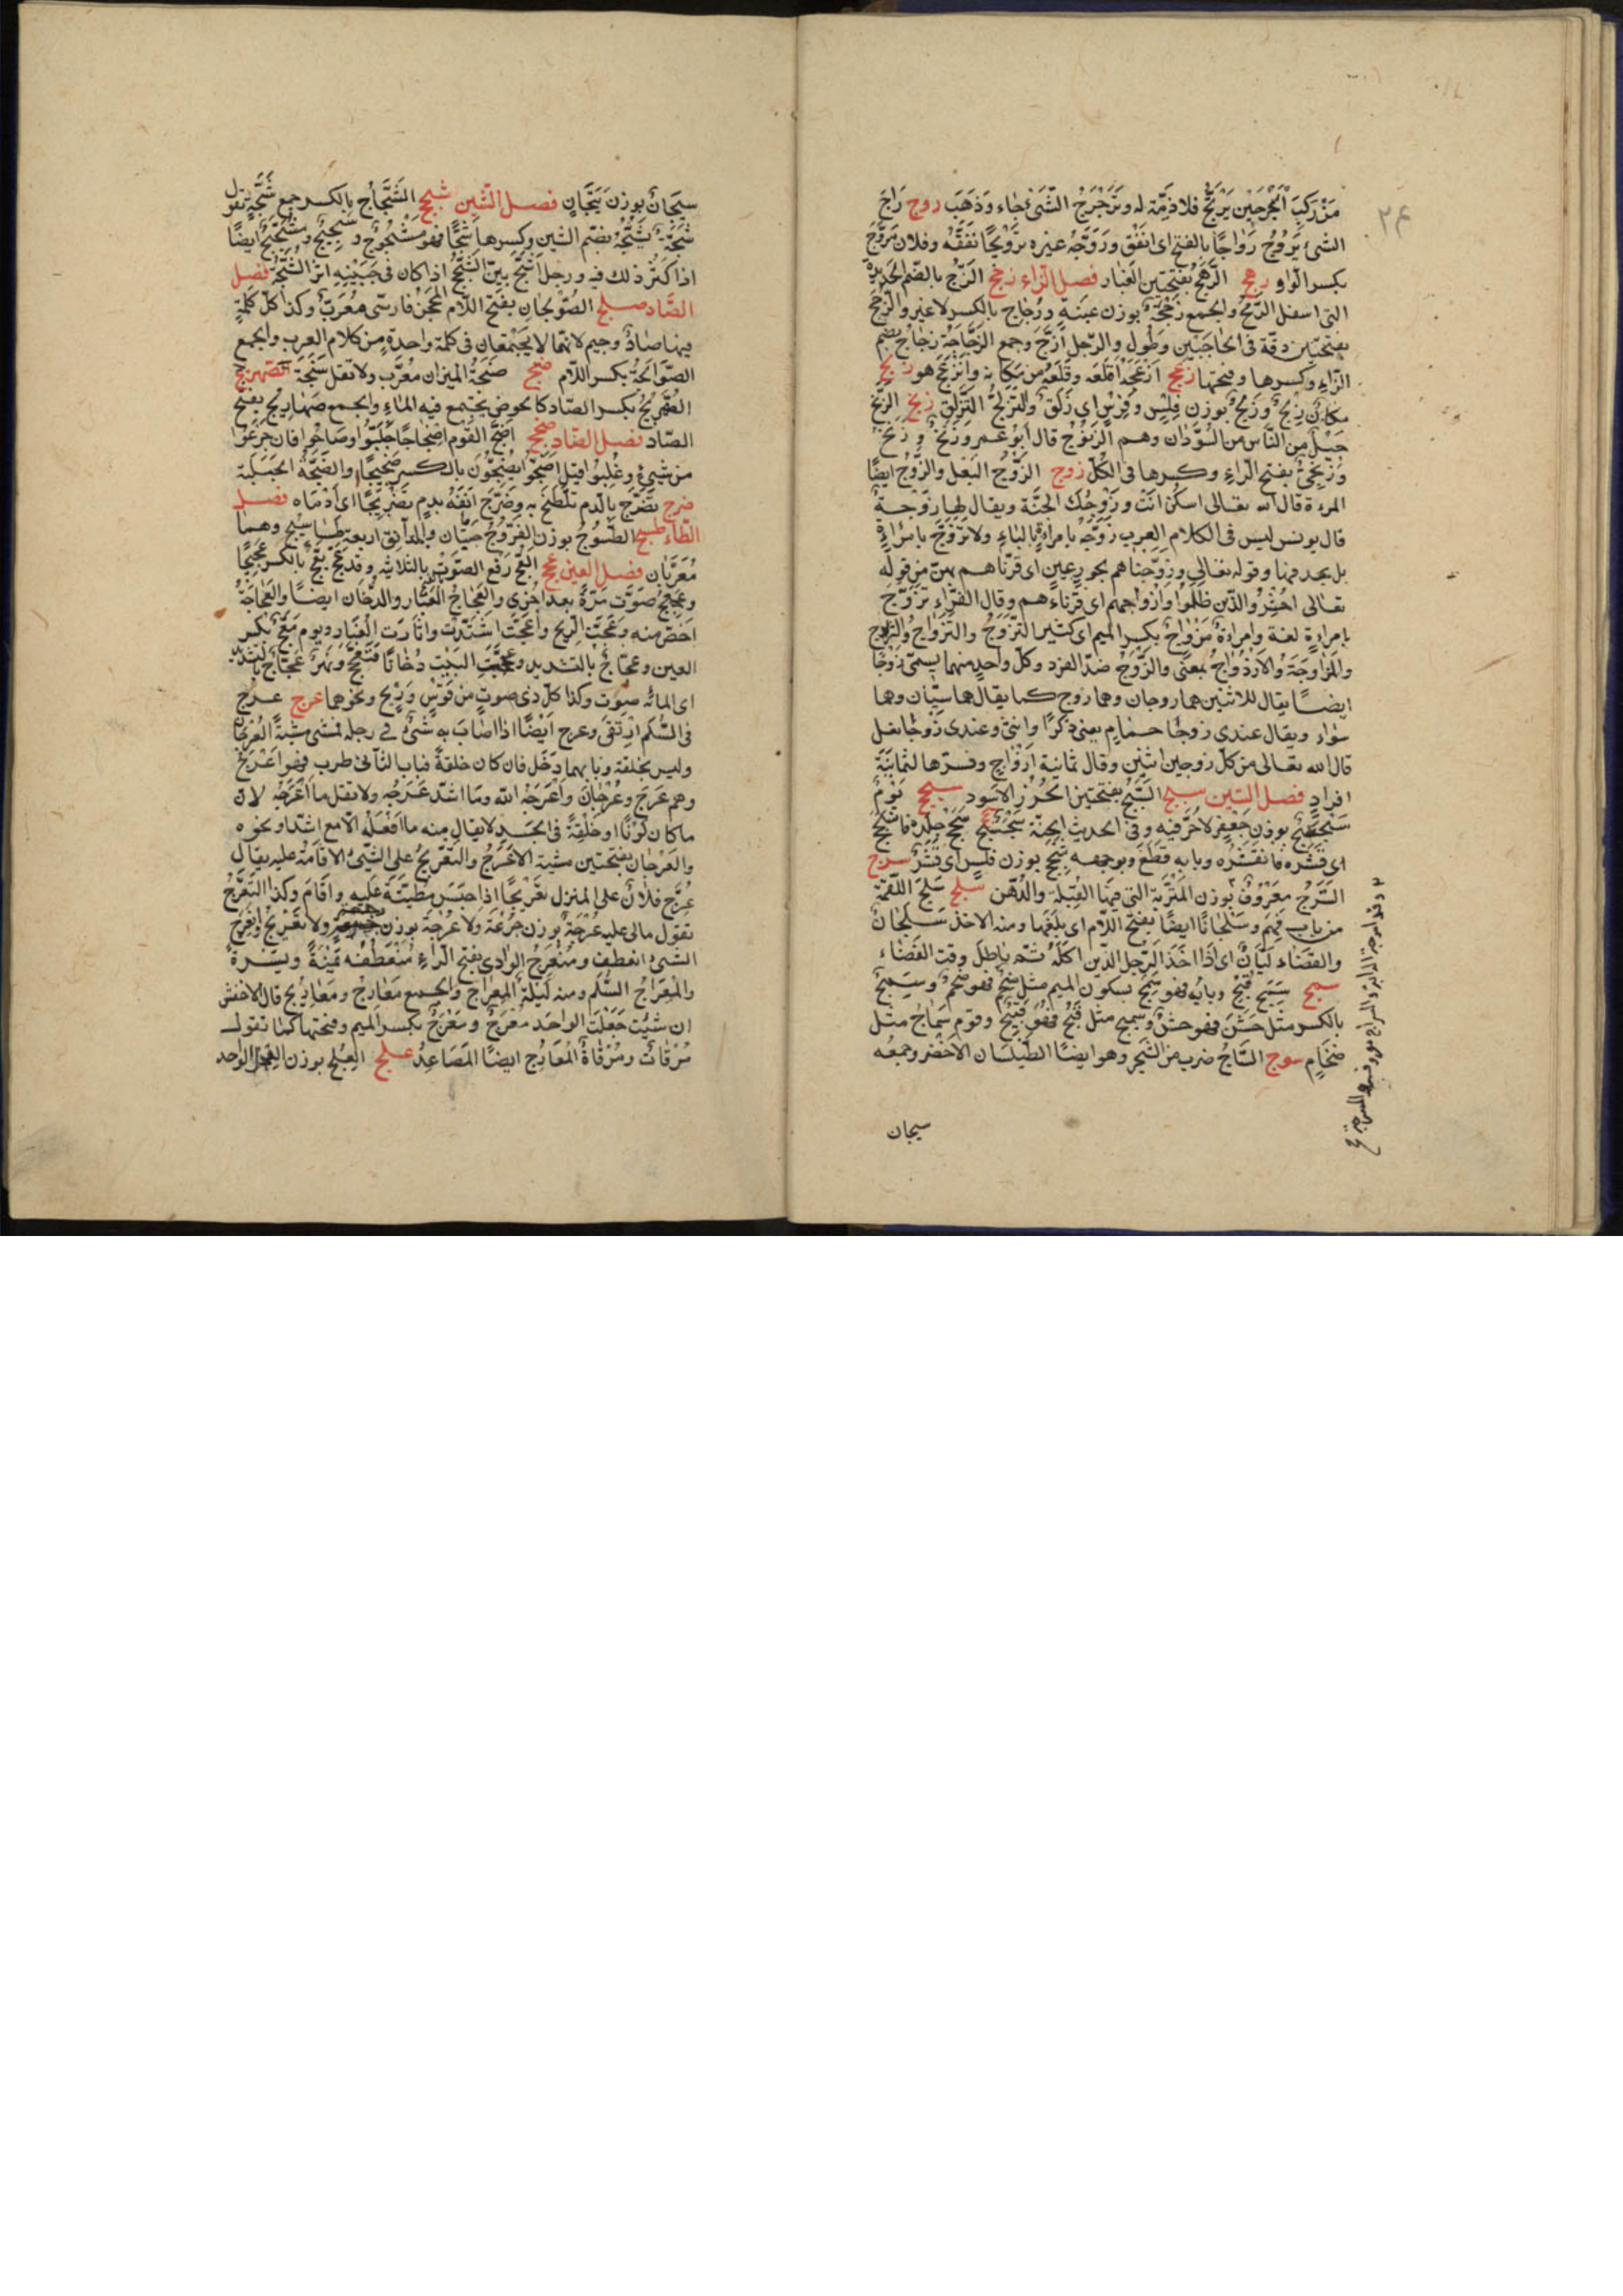 مَنْ رَكِبَ الْبَحْرَ حِيْن يَرْتَجُّ فلا ذِمَّة له وتَرَجْرَجَ الشَّئ جاء وَذَهَبَ روج رَاجَ
الشئ يَرُوْجُ رَوَاجًا بالفتح اى نَفَق وَرَوَّجَهُ غيره تَرْوِيْجًا نَفَّقَه وفلان مُرَوِّجٌ
بكسر الواو رهج الرَّهَجُ بفتحتين الغبار فصل الزاء زجج الزُّجُ بالضم الحَدِيدة
التى اسفل الرُّمْحِ والجمع زِجَجَةٌ بوزن عِنَبَة وزِجَاج بالكسر لا غير والزَّجَجُ
بفتحتين دقة فى الحاجبين وطُول والرّجل أزَجّ وجمع الزُّجَاجَة زجاج بضم
الزاء وكسرها وفتحها زعج أزْعَجَه أقلَعَه وقَلَعَهُ من مكانه وانْزَعَجَ هو زلج
مكانٌ زَلْجٌ وزَلِجٌ بوزن فلس وفَرَس اى زَلَقٌ والتَّزَلُّجُ التَّزَلُّق زنج الزَّنج
جيلٌ من النّاس من السُّوْدان وهم الزُّنُوْج قال ابُو عمرو زَنْجٌ وزِنْجٌ
وزَنْجِىٌّ بفتح الزاء وكسرها فى الكلّ زوج الزَّوْجُ البَعْل والزَّوْجُ ايضًا
المرءة قال الله تعالى اسكُن انْتَ وزَوْجُكَ الجَنَّة ويقال لها زَوْجَةٌ
قال يونس ليس فى الكلام العرب زَوَّجَهُ بامرأةٍ بالباء ولا تَزَوَّجَ بامرأةٍ
بل بحذفها وقوله تعالى وزوّجناهم بحورٍ عين اى قَرَنّاهم بهنّ من قوله
تعالى احْشُرُوا الّذين ظَلَمُوا وازواجهم اى قُرناءَهم وقال الفراء تَزَوَّجَ
بامرءةٍ لغة وامرءةٌ مِزْوَاجٌ بكسر الميم اى كثير التّزَوّجُ والتَّزَاوُجُ والمزاوجة
والْمُزَاوَجَة والازْدِوَاجُ بمعنًى والزَّوْجُ ضدّ الفرد وكلّ واحدٍ منهما يسمّى زَوْجًا
ايضًا يقال للاثنين هما زوجان وهما زوج كما يقال هما سِيّان وهما
سَواء ويقال عندى زوجَا حمام يعنى ذكرًا وانثى وعندى زوجا نعل
قال الله تعالى من كل زوجين اثنين وقال ثمانية ازْوَاجٍ وفسّرها ثمانية
افراد فصل السّين سبج السَّبَجُ بفتحتين الخَرَز الاسود سجج يَوْمٌ
سَجْسَجٌ بوزن جَعْفَر لا حَرّ فيه وفى الحديث الجنّة سَجْسَجٌ سحج جلده فانسَحَجَ
اى قشره فانقشر وبابه قطع وبوجهه سَحْجٌ بوزن فلس اى قَشْر سرج
السَّرْجُ معروفٌ بوزن المَتْرَبة التى فيها الفَتِيلَة والدُّهْن سلج سَلِجَ اللّقْمَة
من باب فَهِمَ وسَلَجَانًا ايضًا بفتح اللام اى بلعها ومنه الاخذ سَلَجَانٌ
والقضاء لَيَّانٌ اى اذا اخَذَ الرجل الدّين اكله ثمّ ماطل وقت القَضَاء
سمج سَمُجَ قَبُحَ وبابه فهو سَمْجٌ بسكون الميم مثل ضَخُمَ فهو ضَخْمٌ وسَمِجٌ
بالكسر مثل خَشُنَ فهو خشن وسميج مثل قَبُحَ فهُوَ قَبِيْحٌ وقوم سِمَاجٌ مثل
ضِخَام سوج السَّاجُ ضرب من الشّجر وهو ايضًا الطَّيْلَسَان الاخْضَر وجمعُه
سيجان
سيجَانٌ بوزن تِيْجَانٍ فصل الشّين شجج الشِّجَاج بالكسر جمع شَجَّةٍ تقول
شَجَّهُ يَشُجُّهُ بضم الشين وكسرها شَجًّا فهو مَشْجُوْجٌ وشَجِيْجٌ ومُشَجَّجٌ ايضًا
اذا كَثُرَ ذلك فيه ورجل اشَجّ بيّن الشَّجَجُ اذا كان فى جَبِيْنِهِ اثر الشَّجَّة فصل
الصّاد صلج الصَّوْلَجَان بفتح اللّام المِحْجَن فارسىّ مُعَرّبٌ وكذا كلّ كلمةٍ
فيها صادٌ وجيم لانّهما لا يَجْتَمِعَان فى كلمة واحدةٍ من كلام العرب والجمع
الصَّوَالِجَةُ بكسر اللّام صنج صَنْجَةُ الميزان مُعَرّب ولا تقل سَنْجَة الصهريج
الصِّهْرِيْجُ بكسر الصّاد كالحوض يجتمع فيه الماء والجمع صَهَارِيْج بفتح
الصّاد فصل الضّاد ضجج أضَجَّ القوم إضْجَاجًا جَلَّبُوا وصَاحُوا فان جَزِعُوا
من شيئ وغُلِبُوا قيل ضَجُّوا يَضِجُّوْنَ بالكسر ضَجِيْجًا والضَّجَّةُ الجَلَبَة
ضرج تَضَرَّجَ بالدّم تلَطَّخَ به وضَرَّجَ انْفَهُ بدمٍ تَضْرِيْجًا اى أدْمَاه فصل
الطّاء طسج الطَّسُّوْجُ بوزن الفَرُّوْجُ حبّتان والدانق اربعة طسَاسِيْج وهما
مُعَرَّبان فصل العين عجج العَجّ رَفْع الصَّوْت بالثلاثه وقد عَجّ يَعِجّ بالكسر عَجِيْجًا
وعَجْعَجَ صَوَّت مَرّة بعد اخْرى والعَجَاجُ الغُبَار والدُّخَان ايضًا والعَجَاجَةُ
اخصّ منه وعَجَّتِ الرِّيْح واعجَّت اشتدّت واثارَت الغُبَار ويوم مُعِجّ بكسر
العين وعجّاجٌ بالتشديد وعجّجتُ البَيْت دُخَانًا فتعجّج ونهر عَجّاج بالتشديد
اى لمائه صوت وكذا كلّ ذى صوتٍ من قوسٍ وريْحٍ ونحوهما عرج عرج
فى السُّلّم ارْتَقَى وعرج ايْضًا اذا اصَابَ به شئٌ فى رجله فمشى مشيةَ العُرْجَان
وليس بخلقة وبابهما دَخَلَ فان كان خلقةً فباب الثّانى طرب فهو اعْرَجُ
وهم عَرَجٌ وعُرْجَانٌ واعْرَجَهُ الله وما اشدّ عَرَجَه ولا تقل ما اعْرَجَه لانّ
ما كان لَوْنًا او خِلْقةً فى الجَسَد لا يقال منه ما أفْعَلَه الّا مع اشدّ ونحوه
والعَرَجان بفتحتين مشية الاعْرَجُ والتّعْرِيجُ على الشّئ الاقامة عليه يقال
عَرَّجَ فلانٌ على المنزل تَعْرِيْجًا اذا حَبَسَ مَطِيَّتَهُ عَلَيه واقامَ وكذا التَّعَرُّجُ
تقول مالى عليه عُرْجَةٌ بوزن جُرْعَة ولا عَرْجَة بوزن ولا تَعْرِيْجٌ وانعَرَجَ
الشئ انعطف ومُنْعَرَجُ الوادى بفتح الراء مُنْعَطَفُه يَمْنَةً ويَسْرَةً
والْمِعْرَاجُ السُّلّم ومنه لَيْلَة الْمِعْرَاج والجمع مَعَارِجُ ومَعَارِيْجُ قال الاخفش
ان شئتَ جَعَلْتَ الواحَد مِعْرَجٌ ومَعْرَجٌ بكسر الميم وفتحها كما تقول
مِرْقَاتٌ ومَرْقَاةٌ المَعَارِج ايضًا المَصَاعِدُ علج العِلْج بوزن العِجْل الواحد